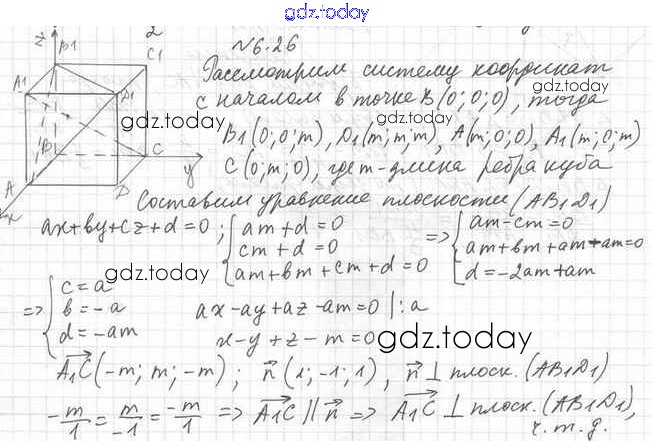 gdz.today
N6.26
z B1 C1
A1 D1
B C y
A D
x
Рассмотрим систему координат
с началом в точке B(0;0;0), тогда
gdz.today
B1(0;0;m), D1(m;m;m), A(m;0;0), A1(m;0;m)
C(0;m;0), где m-длина ребра куба
gdz.today
Составим уравнение плоскости (AB1D1)
ax+by+cz+d=0; { am+d=0 => { am-cm=0
cm+d=0 am+bm+am-am=0
am+bm+cm+d=0 d=-2am+am
gdz.today
=> { c=a
b=-a ax-ay+az-am=0 |:a
d=-am x-y+z-m=0
gdz.today
A1C(-m; m; -m); n(1;-1;1), n ⊥ плоск. (AB1D1)
-m/1 = m/-1 = -m/1 => A1C || n => A1C ⊥ плоск. (AB1D1),
ч.т.д.
gdz.today